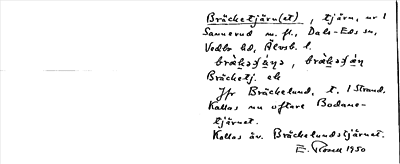 Bräcketjärn(et), tjärn, nr 1
Sannerud m. fl., Dals-Eds sn,
Vedbo hd, Älvsb. l.
Bräcketj. ek
Jfr Bräckelund, t. 1 Strand.
Kallas nu oftare Bodane-
tjärnet.
Kallas äv. Bräckelundstjärnet.
E. 1950